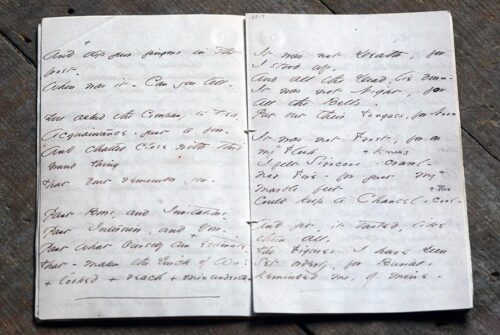 +
And dip your fingers in the
frost -
When was it - Can you tell -
You asked the Company to tea -
Acquaintance - just a few -
And chatted close with this
Grand thing
that dont remember you -
Past Bows, and Invitations -
Past Interview, and Vow -
Past what Ourself can estimate -
that - makes the Quick of Wo!
+ + reach +
It was not Death, for
I stood up,
And all the Dead, lie down -
It was not Night, for
All the Bells
Put out their Tongues, for Noon -
It was not Frost, for on
my Flesh + Knees
I felt Siroccos - crawl -
Nor Fire - for just my +
marble feet + two
Could keep a Chancel - cool -
And yet, it tasted, like
them all,
The Figures I have seen
Set orderly, for Burial,
Reminded me, of mine -